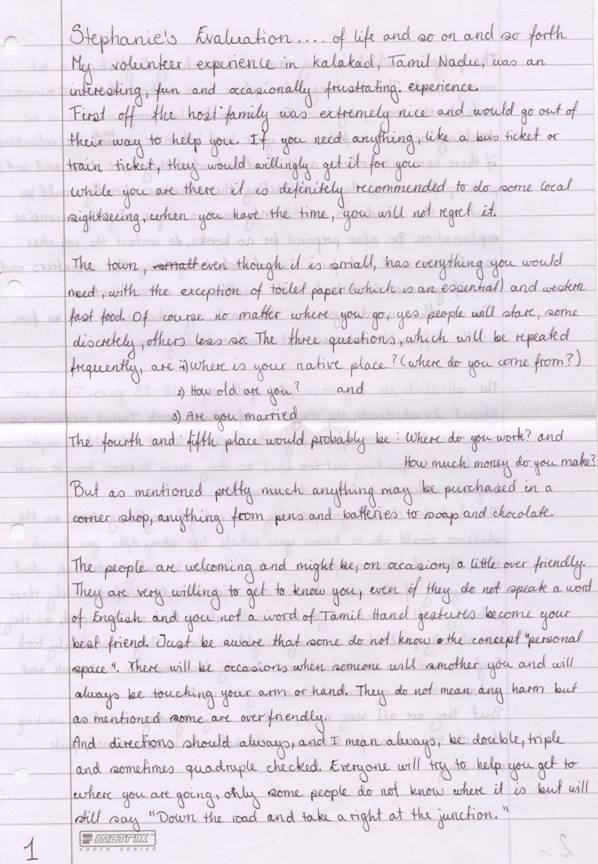 Stephanie's Evaluation.... of life and so on and so forth
My volunteer experience in Kalakad, Tamil Nadu, was an
interesting, fun and occasionally frustrating experience.
First off the host family was extremely nice and would go out of
their way to help you. If you need anything, like a bus ticket or
train ticket, they would willingly get it for you.
While you are there it is definitely recommended to do some local
sightseeing, when you have the time, you will not regret it.
The town, small even though it is small, has everything you would
need, with the exception of toilet paper (which is an essential) and western
fast food. Of course no matter where you go, yes people will stare, some
discretely, others less so. The three questions, which will be repeated
frequently, are 1) Where is your native place? (Where do you come from?)
2) How old are you? and
3) Are you married
The fourth and fifth place would probably be: Where do you work? and
How much money do you make?
But as mentioned pretty much anything may be purchased in a
corner shop, anything from pens and batteries to soap and chocolate.
The people are welcoming and might be, on occasion, a little over friendly.
They are very willing to get to know you, even if they do not speak a word
of English and you not a word of Tamil. Hand gestures become your
best friend. Just be aware that some do not know the concept "personal
space". There will be occasions when someone will smother you and will
always be touching your arm or hand. They do not mean any harm but
as mentioned some are over friendly.
And directions should always, and I mean always, be double, triple
and sometimes quadruple checked. Everyone will try to help you get to
where you are going, only some people do not know where it is but will
still say "Down the road and take a right at the junction."
1
matrix